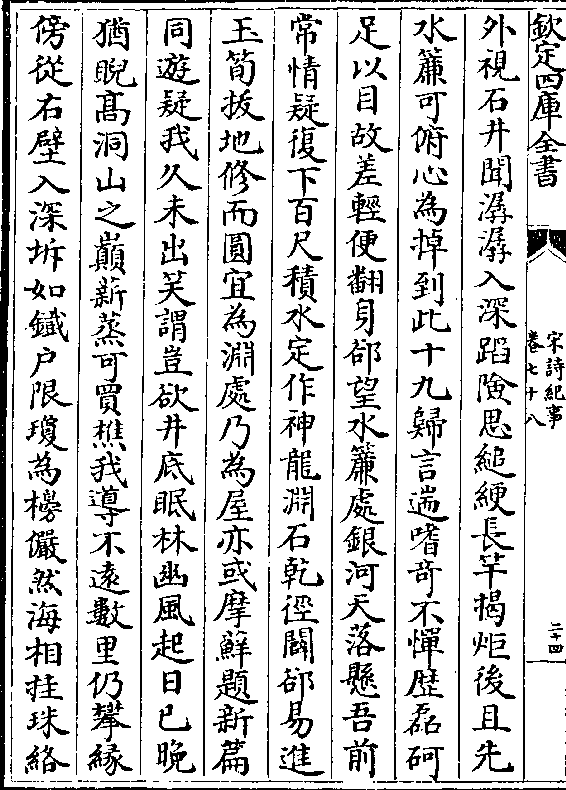 欽定四庫全書
宋詩紀事
卷七十八
二十四
外視石井聞潺潺入深蹈險思縋綆長竿揭炬後且先
水簾可俯心為掉到此十九歸言遄嗜奇不憚歴磊砢
足以目故差輕便翻身郤望水簾處銀河天落懸吾前
常情疑復下百尺積水定作神龍淵石乾徑闢郤易進
玉筍拔地修而圓宜為淵處乃為屋亦或摩蘚題新篇
同遊疑我久未出笑謂豈欲井底眠林幽風起日已晚
猶睨髙洞山之巔薪蒸可買樵我導不遠數里仍攀緣
傍從右壁入深坼如鐵户限瓊為楥儼然海相拄珠絡